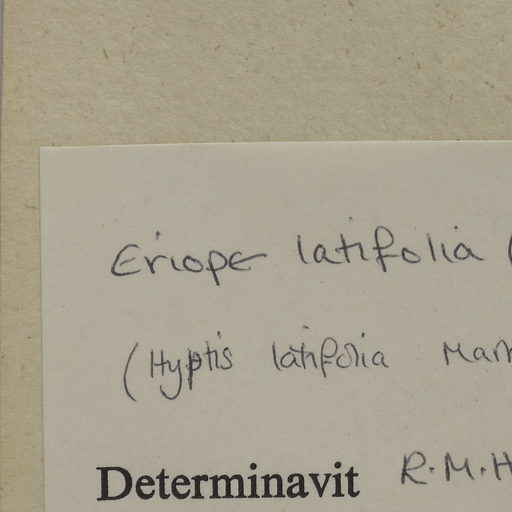 Eriope latifolia (
(Hyptis latifolia Mart
Determinavit R.M.H